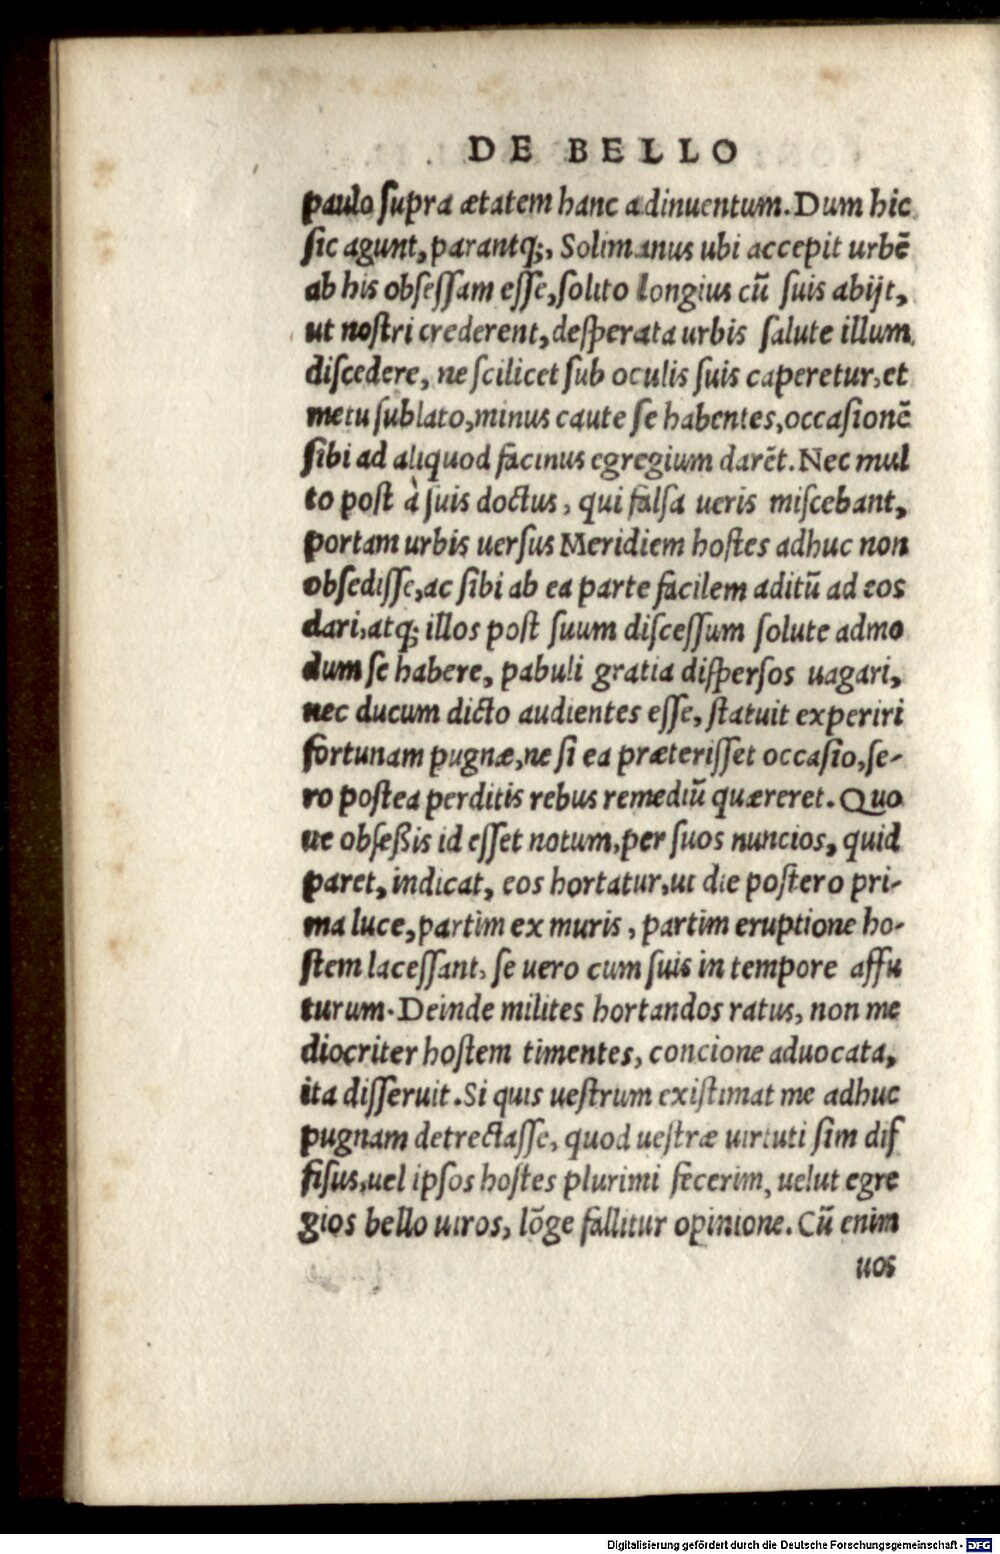 DE BELLO
paulo ſupra ætatem hanc adinuentum. Dum hic
ſic agunt, parantq;, Solimanus ubi accepit urbē
ab his obſeſſam eſſe, ſolito longius cū ſuis abijt,
ut noſtri crederent, deſperata urbis ſalute illum
diſcedere, ne ſcilicet ſub oculis ſuis caperetur, et
metu ſublato, minus caute ſe habentes, occaſionē
ſibi ad aliquod facinus egregium darēt. Nec mul
to poſt à ſuis doctus, qui falſa ueris miſcebant,
portam urbis uerſus Meridiem hoſtes adhuc non
obſediſſe, ac ſibi ab ea parte facilem aditū ad eos
dari, atq; illos poſt ſuum diſceſſum ſolute admo
dum ſe habere, pabuli gratia diſperſos uagari,
nec ducum dicto audientes eſſe, ſtatuit experiri
fortunam pugnæ, ne ſi ea præteriſſet occaſio, ſe-
ro poſtea perditis rebus remediū quæreret. Quo
ue obſeßis id eſſet notum, per ſuos nuncios, quid
paret, indicat, eos hortatur, ut die poſtero pri-
ma luce, partim ex muris, partim eruptione ho-
ſtem laceſſant, ſe uero cum ſuis in tempore affu
turum. Deinde milites hortandos ratus, non me
diocriter hoſtem timentes, concione aduocata,
ita diſſeruit. Si quis ueſtrum existimat me adhuc
pugnam detrectaſſe, quod ueſtræ uirtuti ſim diſ
fiſus, uel ipſos hoſtes plurimi fecerim, uelut egre
gios bello uiros, lōge fallitur opinione. Cū enim
uos
Digitalisierung gefördert durch die Deutsche Forschungsgemeinschaft - DFG